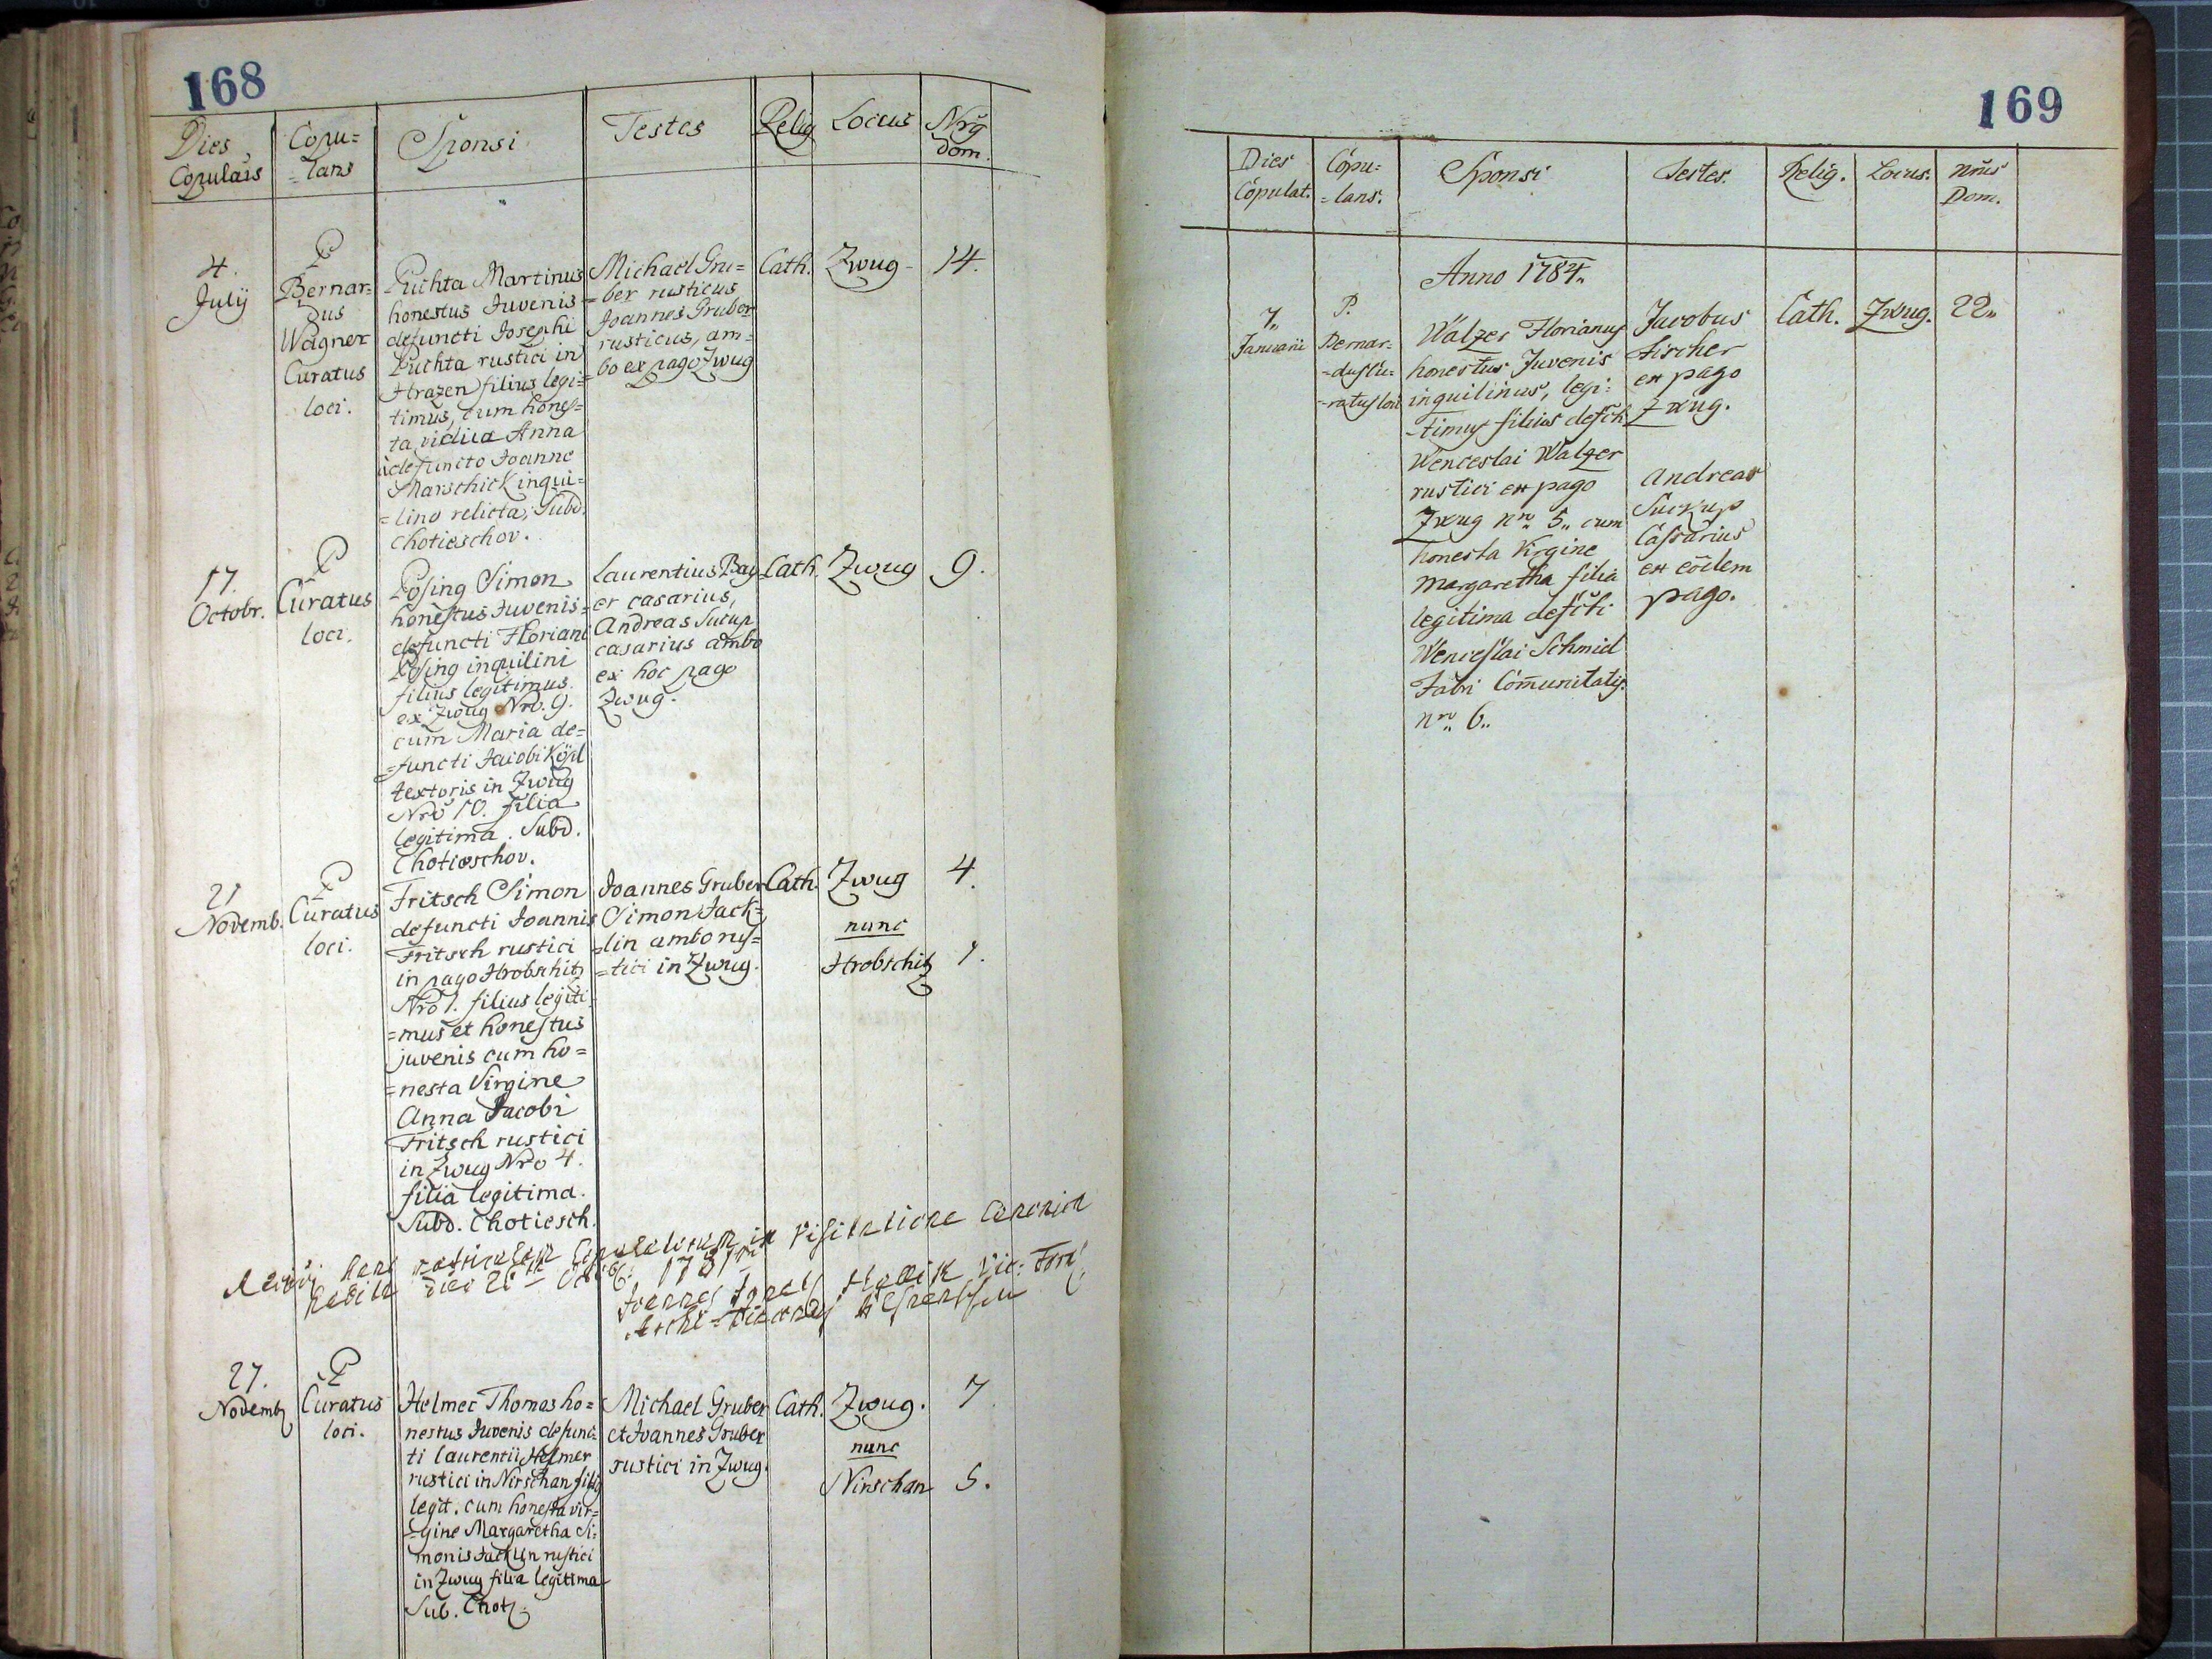 168
Dies Copulais
Copu=
=lans
Sponsi
Testes
Relig
Locus
Nrg dom.
4. July
P Bernar=
dus
Wagner
Curatus
loci.
Puchta Martinus
honestus Juvenis
defuncti Josephi
Puchta rustici in
Hrazen filius legi=
timus, cum hones=
ta vidua Anna
à defuncto Joanne
Marschick inqui=
=lino relicta, Subd.
Chotieschov.
Michael Gru=
=ber rusticus
Joannes Gruber
rusticus, am=
bo ex pago Zwug
Cath.
Zwug
14.
17.
Octobr.
P
Curatus
loci.
Posing Simon
honestus Juvenis
defuncti Floriani
Posing inquilini
filius legitimus
ex Zwug Nro. 9.
cum Maria de=
=functi Jacobi Kögl
textoris in Zwug
Nro 10. filia
legitima. Subd.
Chotieschov.
Laurentius Bay
er casarius,
Andreas Sucup
casarius ambo
ex hoc pago
Zwug.
Cath.
Zwug
9.
21
Novemb.
P
Curatus
loci.
Fritsch Simon
defuncti Joannis
Fritsch rustici
in pago Hrobschitz
Nro 1. filius legiti
=mus et honestus
juvenis cum ho=
=nesta Virgine
Anna Jacobi
Fritsch rustici
in Zwug Nro 4.
filia legitima.
Subd. Chotiesch.
Joannes Gruber
Simon Jack=
=lin ambo rus=
=tici in Zwug.
Cath.
Zwug
nunc
Hrobschitz
4.
1.
hanc matriculam Copulatorum in Visitatione Canonica
habita die 26 1781
Joannes Vic: For:
Archi=
27.
Novemb
P
Curatus
loci.
Helmer Thomas ho=
nestus Juvenis defunc=
ti Laurentii Helmer
rustici in Nirschan filig
legit. cum honesta vir=
=gine Margaretha Si=
monis Jacklin rustici
in Zwug filia legitima
Sub. Chot.
Michael Gruber
et Joannes Gruber
rustici in Zwug.
Cath.
Zwug.
nunc
Nirschan
7
5.
169
Dies Copulat.
Copu=
=lans.
Sponsi
Testes.
Relig.
Locus.
nrus Dom.
Anno 1784.
7.
Januarii
P.
Bernar=
=dus Cu=
=ratus loci
Walzer Florianus
honestus Juvenis
inquilinus, legi=
=timus filius defcti
Wenceslai Walzer
rustici ex pago
Zwug nro 5. cum
honesta Virgine
Margaretha filia
legitima defcti
Wenceslai Schmid
Fabri Communitatis
nro 6.
Jacobus
Fischer
ex pago
Zwug.
Andreas
Suckup
Casarius
ex eodem
pago.
Cath.
Zwug.
22.